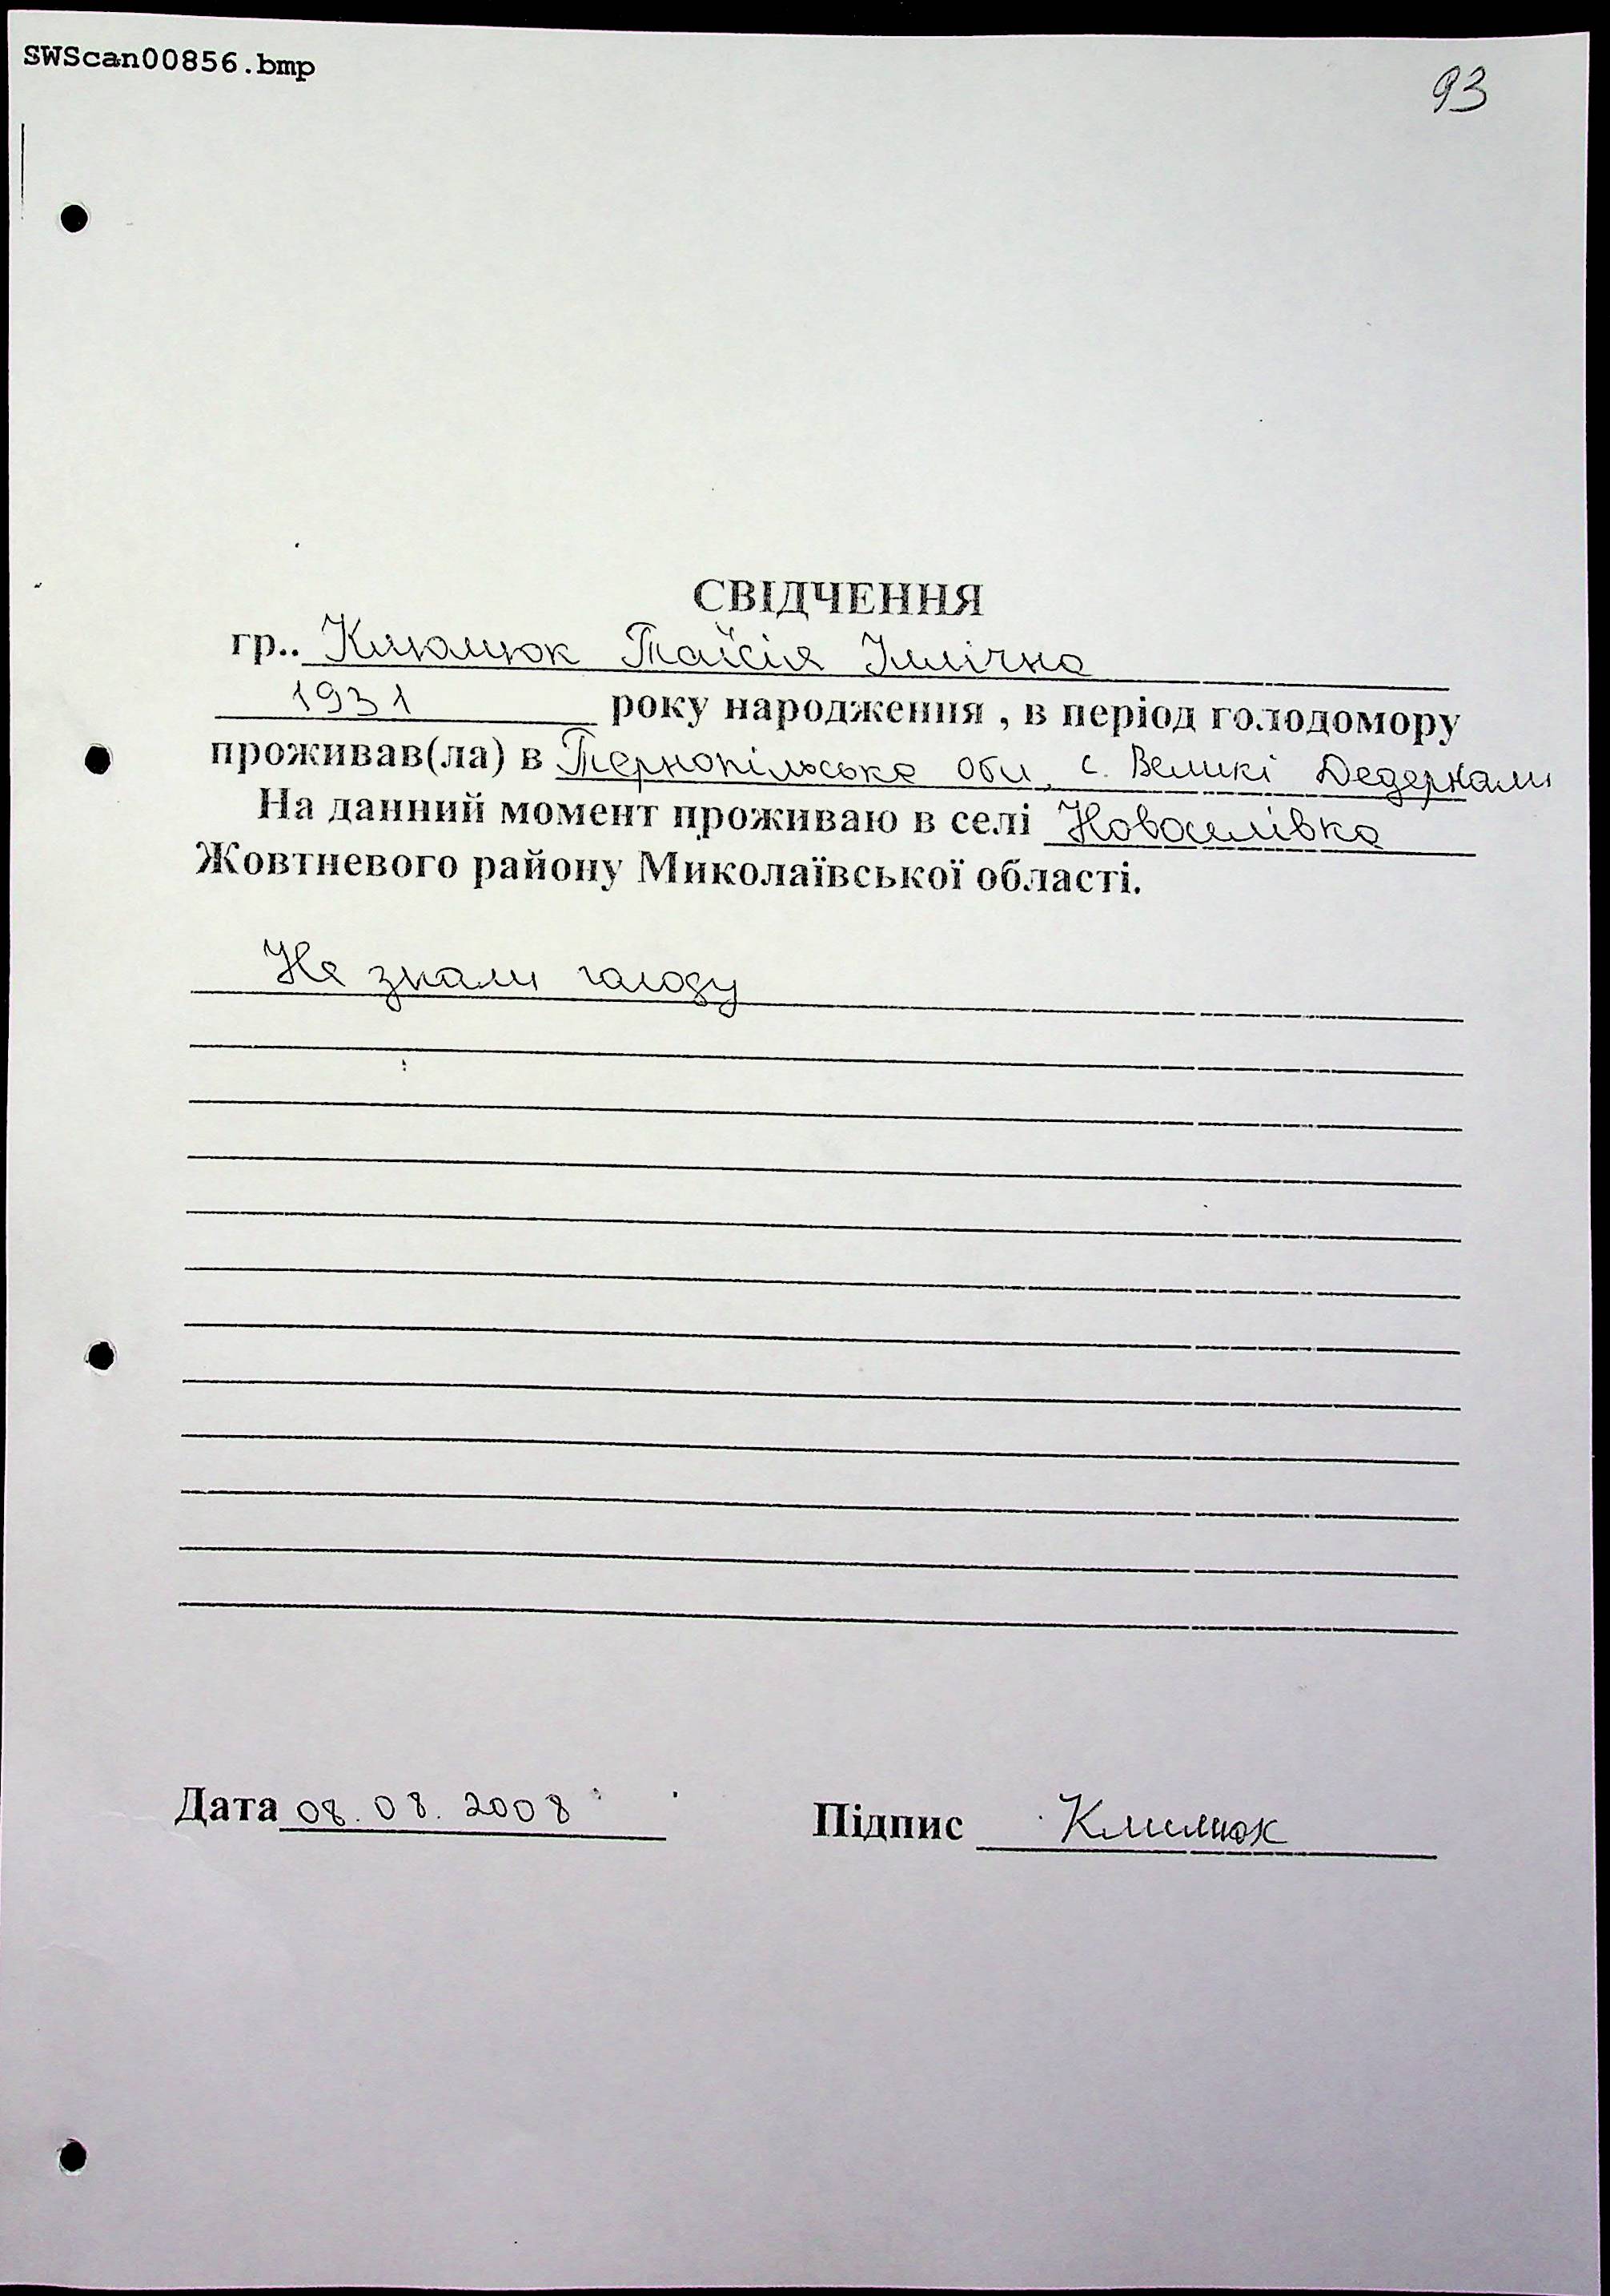 SWScan00856.bmp
93
СВІДЧЕННЯ
гр.. Климюк Таїсія Іллічна
1931 року народження , в період голодомору
проживав(ла) в Тернопільська обл, с. Великі Дедеркали
На данний момент проживаю в селі Новоселівка
Жовтневого району Миколаївської області.
Не знали голоду
Дата 08.08.2008 Підпис Климюк